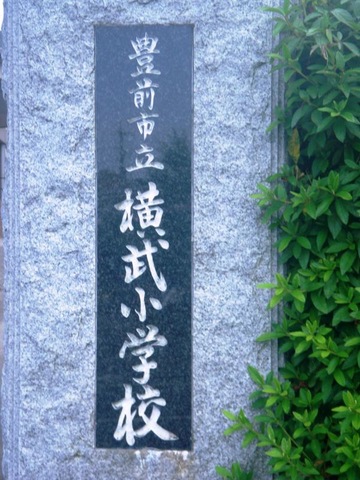 豊前市立横武小学校